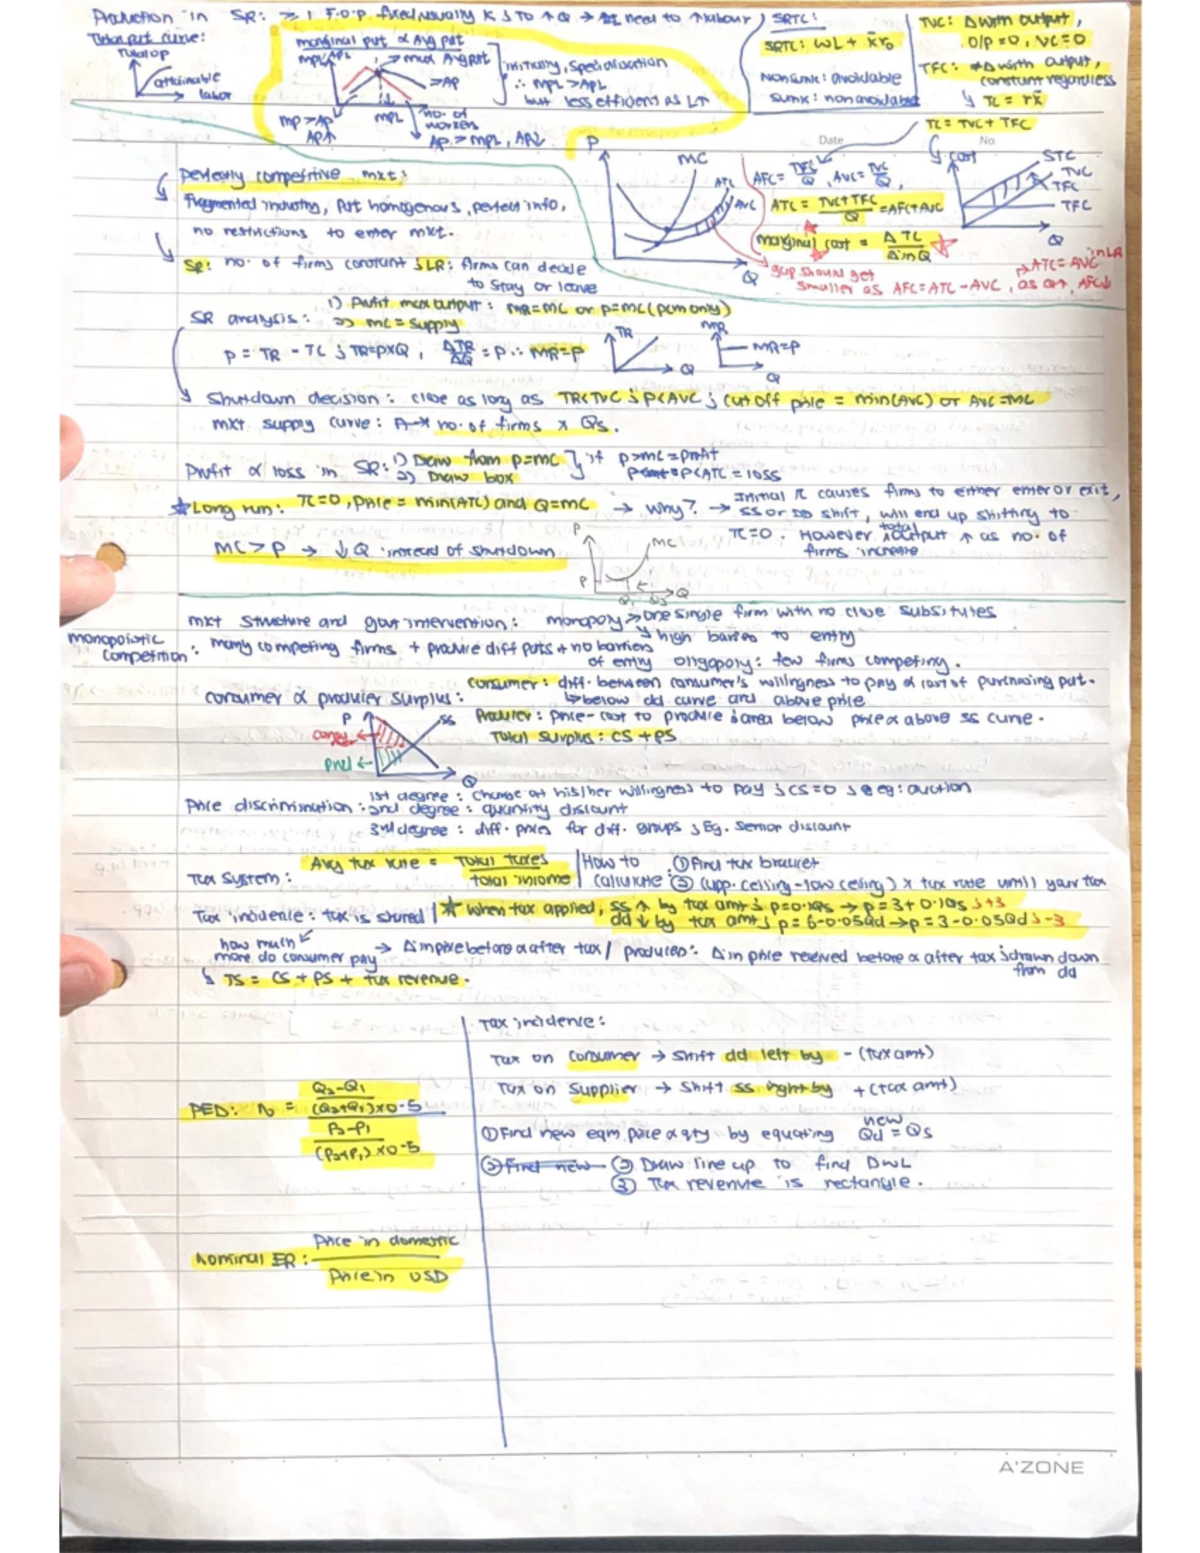 Production in SR: ≥ 1 F.O.P fixed, usually K; To ↑ Q → need to ↑ labour
Total put curve:
Total op
attainable
labor
marginal put & Avg put
MPL/APL
→ max Avg put
→ AP
MPL
no. of workers
MP > AP
AP↑
AP > MPL, AP↓
initially, specialisation
∴ MPL > APL
but less efficient as L↑
SRTC:
SRTC: WL + K̄r₀
Nonsunk: avoidable
Sunk: nonavoidable
TVC: Δ with output,
O/P = 0, VC = 0
TFC: ≠ Δ with output,
constant regardless
↳ TC = rK̄
TC = TVC + TFC
Date
No.
P
MC
ATC
AVC
Q
AFC = TFC/Q, AVC = TVC/Q,
ATC = (TVC+TFC)/Q = AFC + AVC
marginal cost = ΔTC/Δ in Q
gap should get
smaller as AFC = ATC - AVC, as Q↑, AFC↓
→ ATC = AVC in LR
cost
STC
TVC
TFC
TFC
Q
Perfectly competitive mkt:
Fragmented industry, Put homogenous, perfect info,
no restrictions to enter mkt.
SR: no. of firms constant; LR: firms can decide
to stay or leave
SR analysis: 1) Profit max output: MR=MC or P=MC (pcm only)
⇒ MC = supply
P = TR - TC; TR=P×Q, ΔTR/ΔQ = P ∴ MR=P
TR
Q
MR
MR=P
Q
Shutdown decision: close as long as TR<TVC; P<AVC; cut off price = min(AVC) or AVC=MC
mkt supply curve: no. of firms × Qs.
Profit & loss in SR: 1) Draw from P=MC
2) Draw box
if P>MC = profit
P<ATC = loss
★Long run: π=0, Price = min(ATC) and Q=MC → Why? → Initial π causes firms to either enter or exit,
ss or DD shift, will end up shifting to
π=0. However total output ↑ as no. of
firms increase
MC > P → ↓Q instead of shutdown
P
MC
P
Q₁ Q₂ Q
mkt structure and govt intervention: monopoly → one single firm with no close subsitutes
↳ high barries to entry
monopolistic
competition: many competing firms + produce diff puts + no barriers
of entry oligopoly: few firms competing.
consumer & producer surplus: consumer: diff. between consumer's willingness to pay & cost of purchasing put.
↳ below dd curve and above price
Producer: price - cost to produce; area below price & above ss curve.
Total surplus: CS + PS
P
SS
Q
Price discrimination: 1st degree: Charge at his/her willingness to pay; CS=0; eg: auction
2nd degree: quantity discount
3rd degree: diff. prices for diff. groups; Eg. Senior discount
Tax System: Avg tax rate = Total taxes / total income
How to calculate: ① Find tax bracket
② (upp. ceiling - low ceiling) × tax rate until your tax
Tax incidence: tax is shared | ★ When tax applied, ss ↑ by tax amt; P=0.1Qs → P=3+0.1Qs; +3
dd ↓ by tax amt; P=6-0.05Qd → P=3-0.05Qd; -3
how much
more do consumer pay → Δ in price before & after tax / producers: Δ in price received before & after tax; drawn down
from dd
↳ TS = CS + PS + tax revenue.
Tax incidence:
Tax on consumer → shift dd left by - (tax amt)
Tax on supplier → shift ss right by + (tax amt)
① Find new eqm price & qty by equating new Qd = Qs
② Find new ② Draw line up to find DWL
③ Tax revenue is rectangle.
PED: n = Q₂-Q₁ / (Q₂+Q₁)×0.5
P₂-P₁ / (P₂+P₁)×0.5
Nominal ER: Price in domestic / Price in USD
A'ZONE